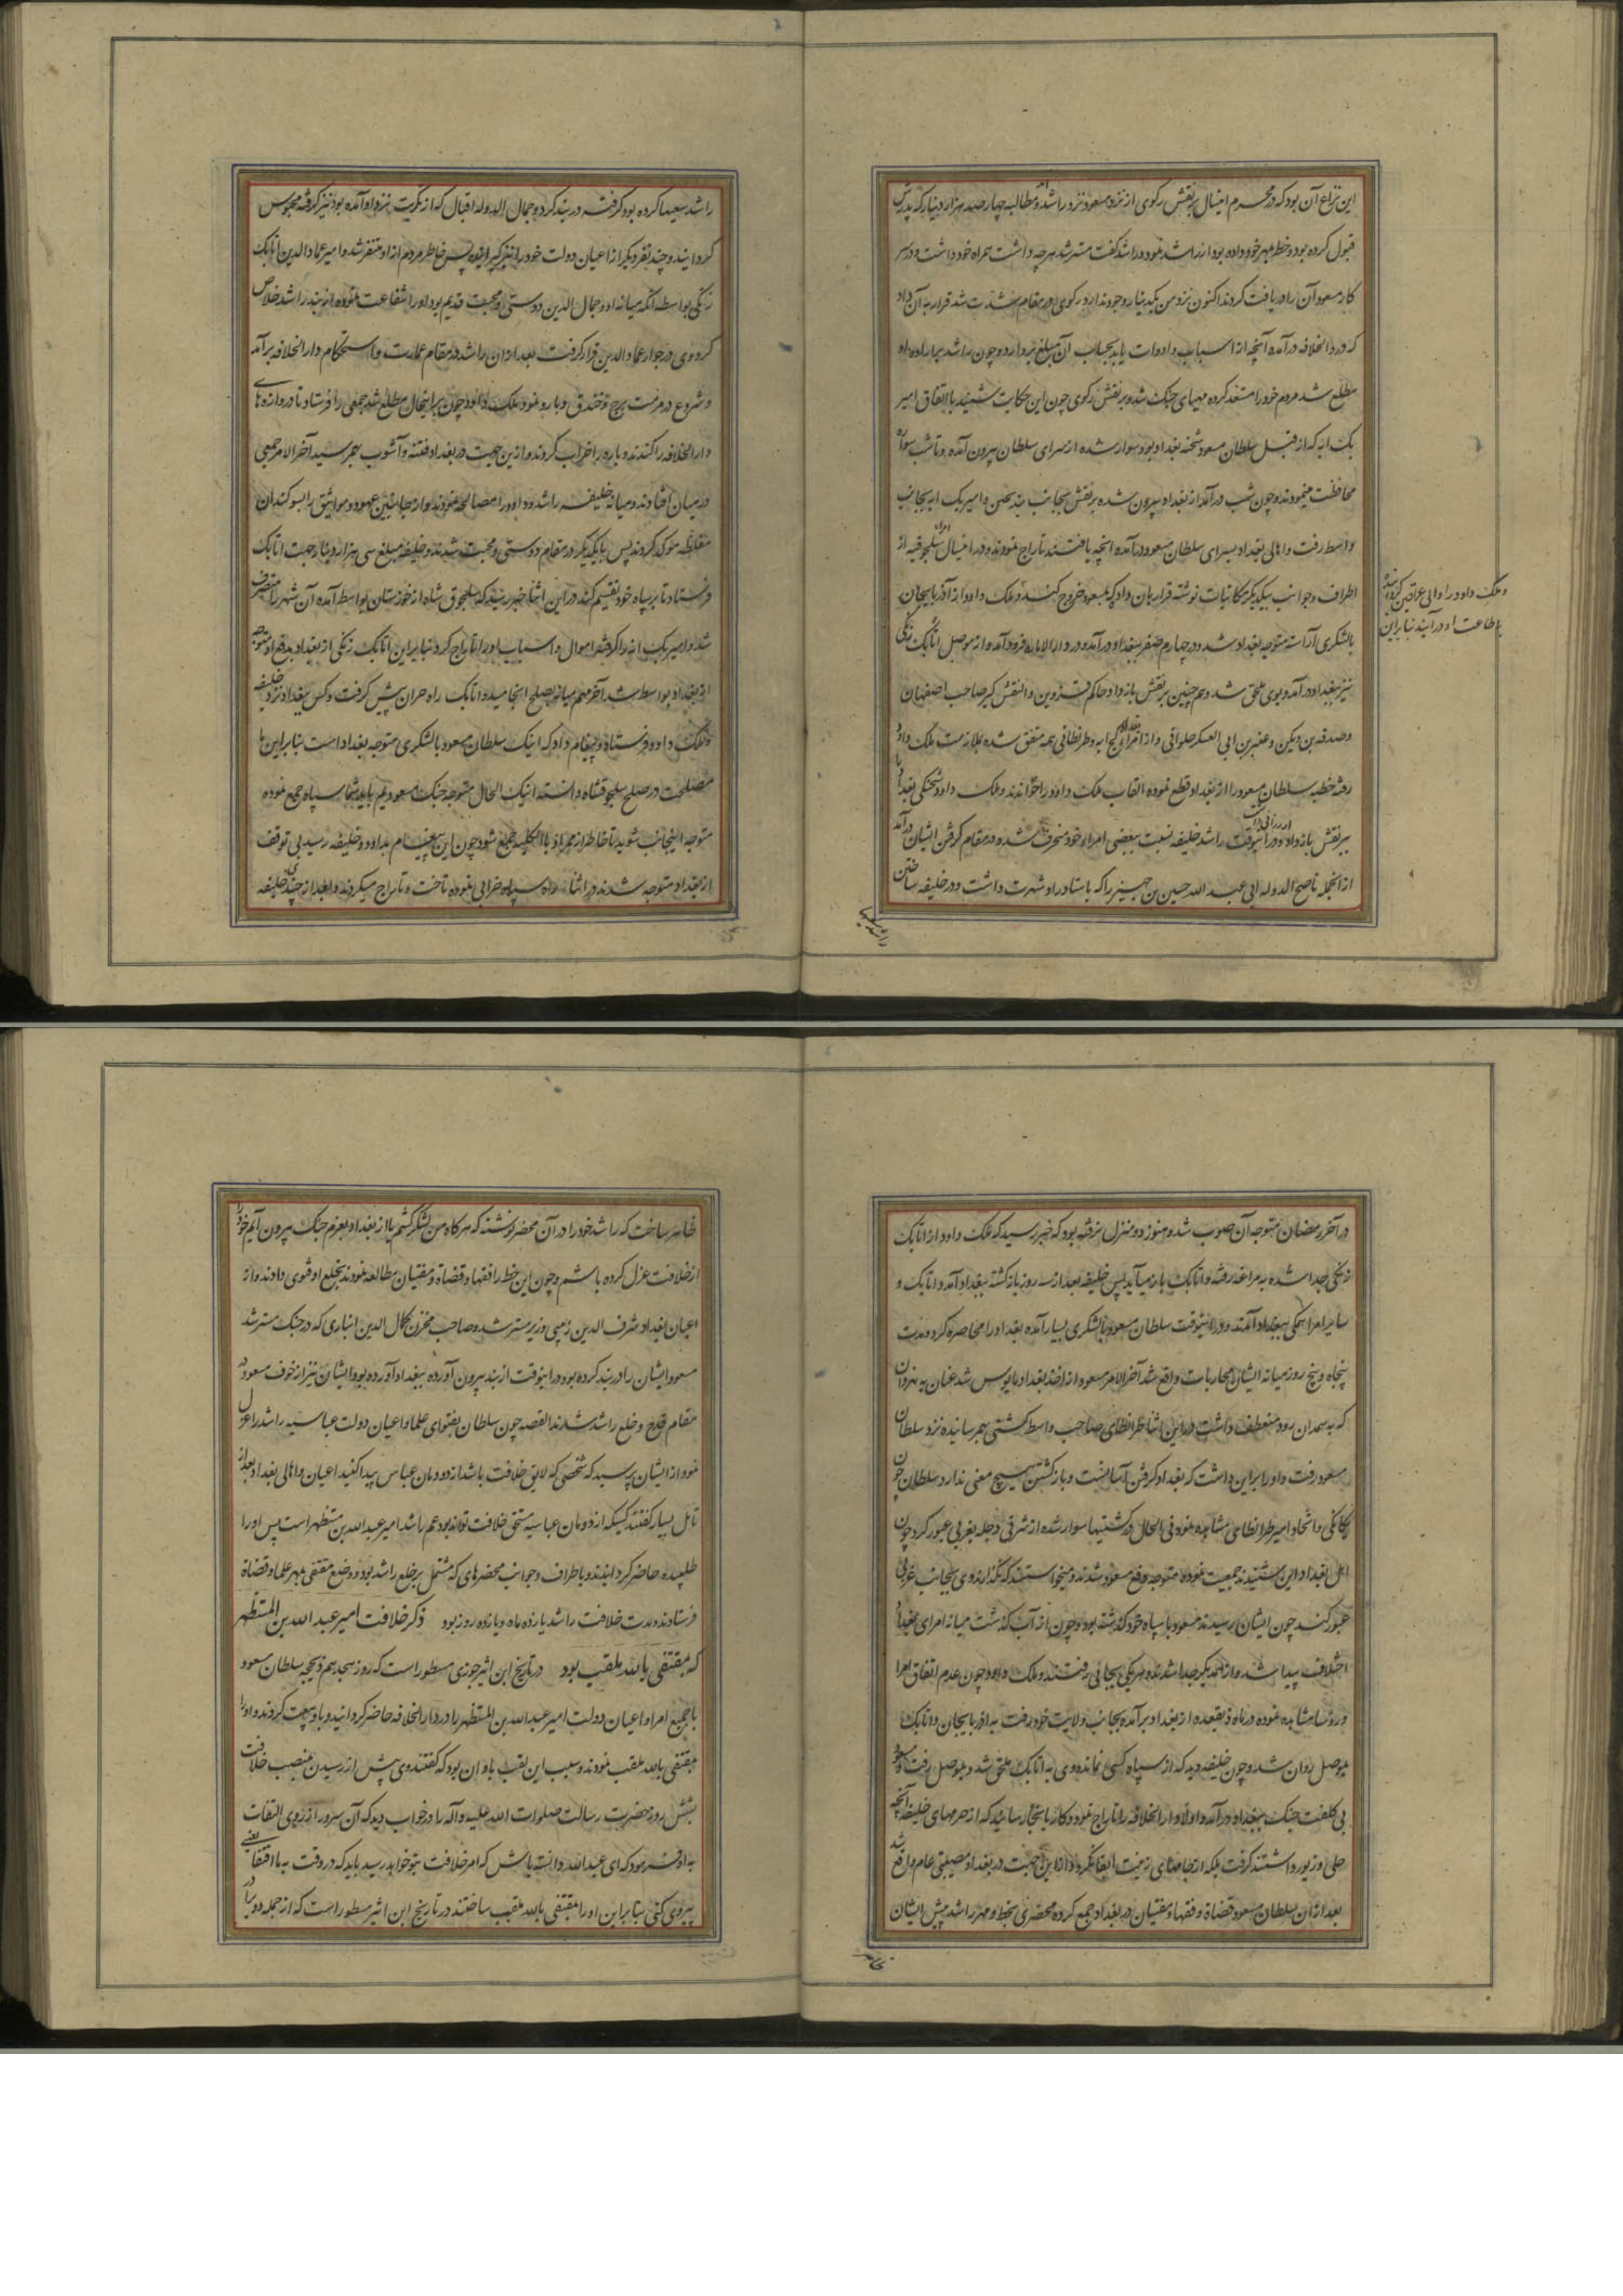 این نزاع آن بود که در محرم اینسال برنقش زکوی از نزد مسعود نزد راشد آمد و مطالبه چهار صد هزار دینار که پدرش
قبول کرده بود و خط بمهر خود داده بود از راشد نمود و راشد گفت مسترشد هر چه داشت همراه خود داشت و در سر
کار مسعود آن را دریافت کردند اکنون نزد من یکدینار وجود ندارد زکوی در مقام شدت شد قرار به آن داد
که در دار الخلافه درآمده آنچه از اسباب و ادوات یابد بحساب آن مبلغ بردارد و چون راشد بر اراده او
مطلع شد مردم خود را مستعد کرده مهیای جنک شد و برنقش زکوی چون این حکایت شنید با اتفاق امیر
بک ابه که از قبل سلطان مسعود شحنه بغداد بود سوار شده از سرای سلطان بیرون آمده و تا شب سواره
محافظت مینمودند و چون شب درآمد از بغداد بیرون شده برنقش بجانب بند بحین و امیر بک ابه بجانب
واسط رفت و اهالی بغداد بسرای سلطان مسعود درآمده آنچه یافتند تاراج نمودند و در اینسال امرای سلجوقیه از
اطراف و جوانب بیکدیگر مکاتبات نوشته قرار بان داد که بمسعود خروج کنند و ملک داود از آذربایجان
وملک داود را والی عراقین کردانیده
باطاعت او درآیند بنابراین
بالشکری آراسته متوجه بغداد شد و در چهارم صفر ببغداد درآمد و در دار الاماره فرود آمد و از موصل اتابک زنکی
نیز ببغداد درآمد و بوی ملحق شد و هم چنین برنقش بازدار حاکم قزوین و البقش کبیر صاحب اصفهان
و صدقه بن دبیس و عنبر بن ابی العسکر حلوانی و از امراء کج ابه و طرنطانی همه متفق شده بملازمت ملک داود
رفته خطبه سلطان مسعود را از بغداد قطع نموده القاب ملک داود را خواندند و ملک داود شحنکی بغداد را
ببرنقش بازدار داد و درینوقت راشد خلیفه نسبت ببعضی امراء خود منحرف شده در مقام کرفتن ایشان درآمد
از انجمله ناصح الدوله ابی عبد الله حسین بن جهیر را که باستاد دار او شهرت داشت و در خلیفه ساختن
راشد سعیها
راشد سعیها کرده بود کرفته در بند کرد و جمال الدوله اقبال که از تکریت نزد او آمده بود نیز کرفته محبوس
کردانید و چند نفر دیگر از اعیان دولت خود را نیز کیرانیده پس خاطر مردم از او متنفر شد و امیر عماد الدین اتابک
زنکی بواسطه آنکه میانه او و جمال الدین دوستی و محبت قدیم بود او را شفاعت نموده از بند راشد خلاص
کرد و وی در جوار عماد الدین قرار گرفت بعد از ان راشد در مقام عمارت و استحکام دار الخلافه برآمد
و شروع در مرمت برج و خندق و بارو نمود ملک داود چون بر اینحال مطلع شد جمعی را فرستاد تا دروازه های
دار الخلافه را کندند و باره را خراب کردند و از ین جهت در بغداد فتنه و آشوب بهم رسید آخر الامر جمعی
در میان افتادند و میانه خلیفه راشد و داود را مصالحه نمودند و از جانبین عهود و مواثیق را بسوکندان
مغلظه موکد کردند پس با یکدیگر در مقام دوستی و محبت شدند و خلیفه مبلغ سی هزار دینار جهت اتابک
فرستاد تا بر سپاه خود تقسیم کند در این اثنا خبر رسید که سلجوق شاه از خوزستان بواسط آمده آن شهر را متصرف
شد و امیر بک ابه را کرفته اموال و اسباب او را تاراج کرد بنابراین اتابک زنکی از بغداد بدفع او متوجه
از بغداد بواسط شد آخر مهم میانه بصلح انجامید و اتابک راه حران پیش کرفت و کس ببغداد نزد خلیفه
و ملک داود فرستاد و پیغام داد که اینک سلطان مسعود بالشکری متوجه بغداد است بنابراین ما
مصلحت در صلح سلجوقشاه دانسته اینک الحال متوجه جنک مسعودیم باید شما سپاه جمع نموده
متوجه اینجانب شوید تا خاطر از ممر او بالکلیه جمع شود چون این پیغام بداود و خلیفه رسید بی توقف
از بغداد متوجه شدند در اثنا راه سپاه خرابی نموده تاخت و تاراج میکردند و بعد از چندی خلیفه
در آخر رمضان متوجه آن صوب شد و هنوز دو منزل نرفته بود که خبر رسید که ملک داود از اتابک
زنکی جدا شده به مراغه رفته و اتابک باز میآید پس خلیفه بعد از سه روز باز کشته ببغداد آمد و اتابک و
سایر امرا همکی ببغداد آمدند و در اینوقت سلطان مسعود بالشکری بسیار آمده بغداد را محاصره کرد و مدت
پنجاه و پنج روز میانه ایشان محاربات واقع شد آخر الامر مسعود از اخذ بغداد مایوس شد عنان به نهروان
که به همدان رود منعطف داشت در این اثنا طرنطای صاحب واسط کشتی بهم رسانیده نزد سلطان
مسعود رفت و او را بر این داشت که بغداد کرفتن آسانست و باز کشتن هیچ معنی ندارد و سلطان چون
یکانکی و اتحاد امیر طرنطای مشاهده نموده فی الحال در کشتیها سوار شده از شرقی دجله بغربی عبور کرد چون
اهل بغداد این شنیدند جمعیت نموده متوجه دفع مسعود شدند و میخواستند که نگذارند وی بجانب غربی
عبور کند چون ایشان رسیدند مسعود با سپاه خود کذشته بود و چون از آب کذشت میانه امرای بغداد
اختلاف پیدا شد و از همدیگر جدا شدند هر یکی بجائی رفتند و ملک داود چون عدم اتفاق امرا
و روسا مشاهده نموده در ماه ذیقعده از بغداد برآمده بجانب ولایت خود رفت به اذربایجان و اتابک
بموصل روان شد و چون خلیفه دید که از سپاه کسی نمانده وی به اتابک ملحق شد و بموصل رفت و مسعود
بی کلفت جنک ببغداد درآمد و اولا دار الخلافه را تاراج نمود و کار بانجا رسانید که از حرمهای خلیفه آنچه
حلی و زیور داشتند کرفت بلکه از جامهای زینت ابقا نکرد و از این جهت در بغداد مصیبتی عام واقع شد
بعد از آن سلطان مسعود قضاة و فقها و مفتیان در بغداد جمع کرده محضری بخط و مهر راشد پیش ایشان
ظاهر
ظاهر ساخت که راشد خود را در آن محضر نوشته که هر کاه من لشکر کشم یا از بغداد بعزم جنک بیرون آیم خود را
از خلافت عزل کرده باشم و چون این خط را فقها و قضاة و مفتیان مطالعه نمودند بخلع او فتوی دادند و از
اعیان بغداد شرف الدین زینبی وزیر مسترشد و صاحب مخزن کمال الدین انباری که در جنک مسترشد
مسعود ایشان را در بند کرده بود در اینوقت از بند بیرون آورده ببغداد آورده بود و ایشان نیز از خوف مسعود در
مقام قدح و خلع راشد شدند القصه چون سلطان بفتوای علما و اعیان دولت عباسیه راشد را عزل
نمود از ایشان پرسید که شخصی که لایق خلافت باشد از دودمان عباس پیدا کنید اعیان و اهالی بغداد بعد از
تامل بسیار گفتند کسیکه از دودمان عباسیه مستحق خلافت تواند بود عم راشد امیر عبد الله بن مستظهر است پس او را
طلبیده حاضر کردانیدند و باطراف و جوانب محضرهای که مشتمل بر خلع راشد بود و وضع مقتفی بمهر علما و قضاة
فرستادند و مدت خلافت راشد یازده ماه و یازده روز بود ذکر خلافت امیر عبد الله بن المستظهر
که بمقتفی بالله ملقب بود در تاریخ ابن اثیر جوزی مسطور است که روز هجدهم ذیحجه سلطان مسعود
با جمیع امرا و اعیان دولت امیر عبد الله بن المستظهر را در دار الخلافه حاضر کردانید و با او بیعت کردند و او را
بمقتفی بالله ملقب نمودند و سبب این لقب باو ان بود که گفتند وی پیش از رسیدن بمنصب خلافت
بشش روز حضرت رسالت صلوات الله علیه وآله را در خواب دید که آن سرور از روی التفات
به او فرمود که ای عبد الله دانسته باش که امر خلافت بتو خواهد رسید باید که در وقت به ما اقتفا یعنی
پیروی کنی بنابراین او را بمقتفی بالله ملقب ساختند در تاریخ ابن اثیر مسطور است که از جمله دو برادر